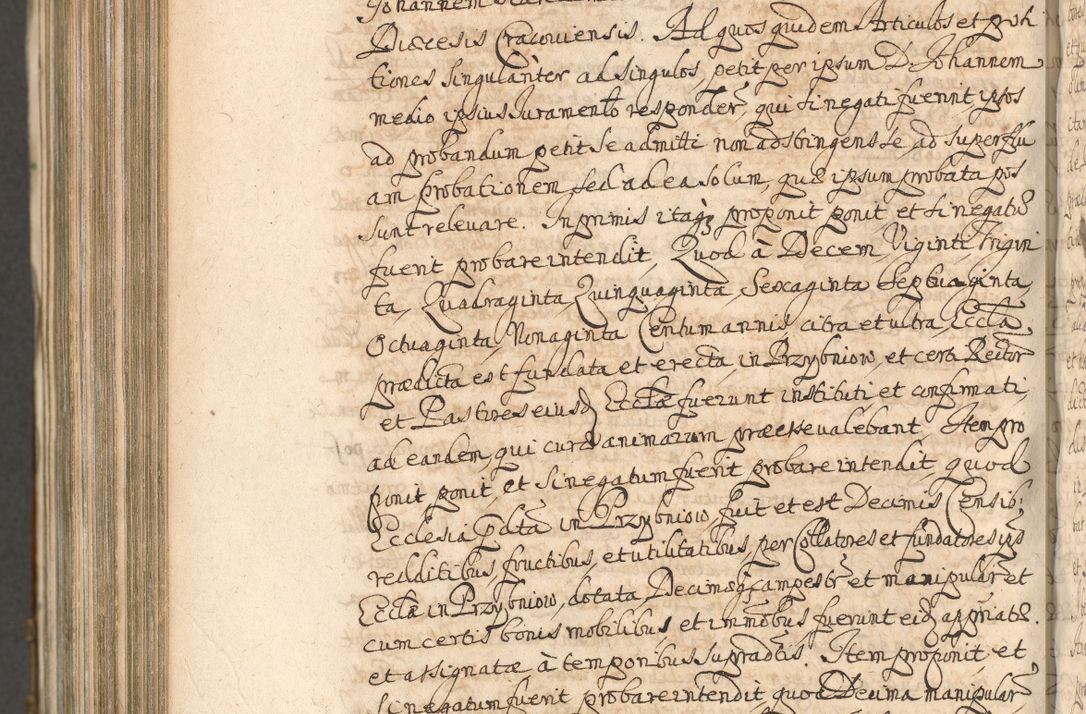 Johannem
Diœcesis Cracouiensis. Ad quos quidem Articulos et posi
tiones singulariter ad singulos, petit per ipsum D. Johannem
medio ipsius Juramento responderj, qui si negati fuerint ipsos
ad probandum petit se admitti non adstringens se, ad superflu
am probationem sed ad ea solum, quæ ipsum probata pos
sunt releuare. Inprimis itaq; proponit ponit et si negatũ
fuerit probare intendit, Quod à Decem, Viginti, Trigin
ta, Quadraginta, Quinquaginta, Sexaginta Septuaginta,
Octuaginta, Nonaginta Centum annis citra et ultra, Eccla
prædicta est fundata et erecta, in Przybniow, et certi Rector
et Pastores eiusd Ecclæ fuerunt instituti et confirmati,
ad eandem, qui curæ animarum præesse valebant. Item pro
ponit ponit, et si negatum fuerit probare intendit, quod
Ecclesia pdta in Przybniow, fuit et est Decimis Censib;
redditibus fructibus, et utilitatibus, per Collatores et fundatores ips
Ecclæ in Przybniow, dotata, Decimæq; campestr et manipular et
cum certis bonis mobilibus, et immobus fuerunt eid appriatæ.
et assignatæ à temporibus supradctis. Item proponit et
si negatum fuerit probare intendit quod Decima manipular